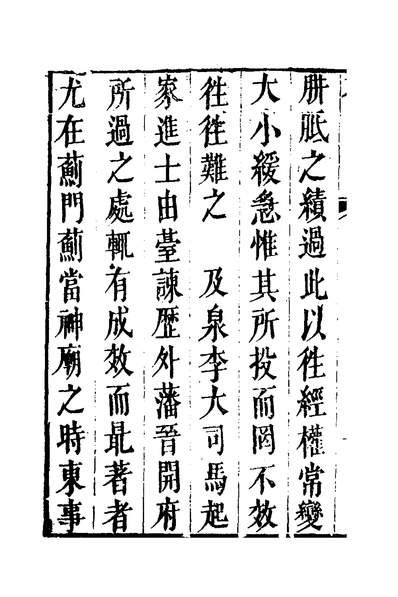 胼胝之績過此以徃經權常變
大小緩急惟其所投而罔不效
徃徃難之　及泉李大司馬起
家進士由臺諫歷外藩晉開府
所過之處輒有成效而最著者
尤在薊門薊當神廟之時東事